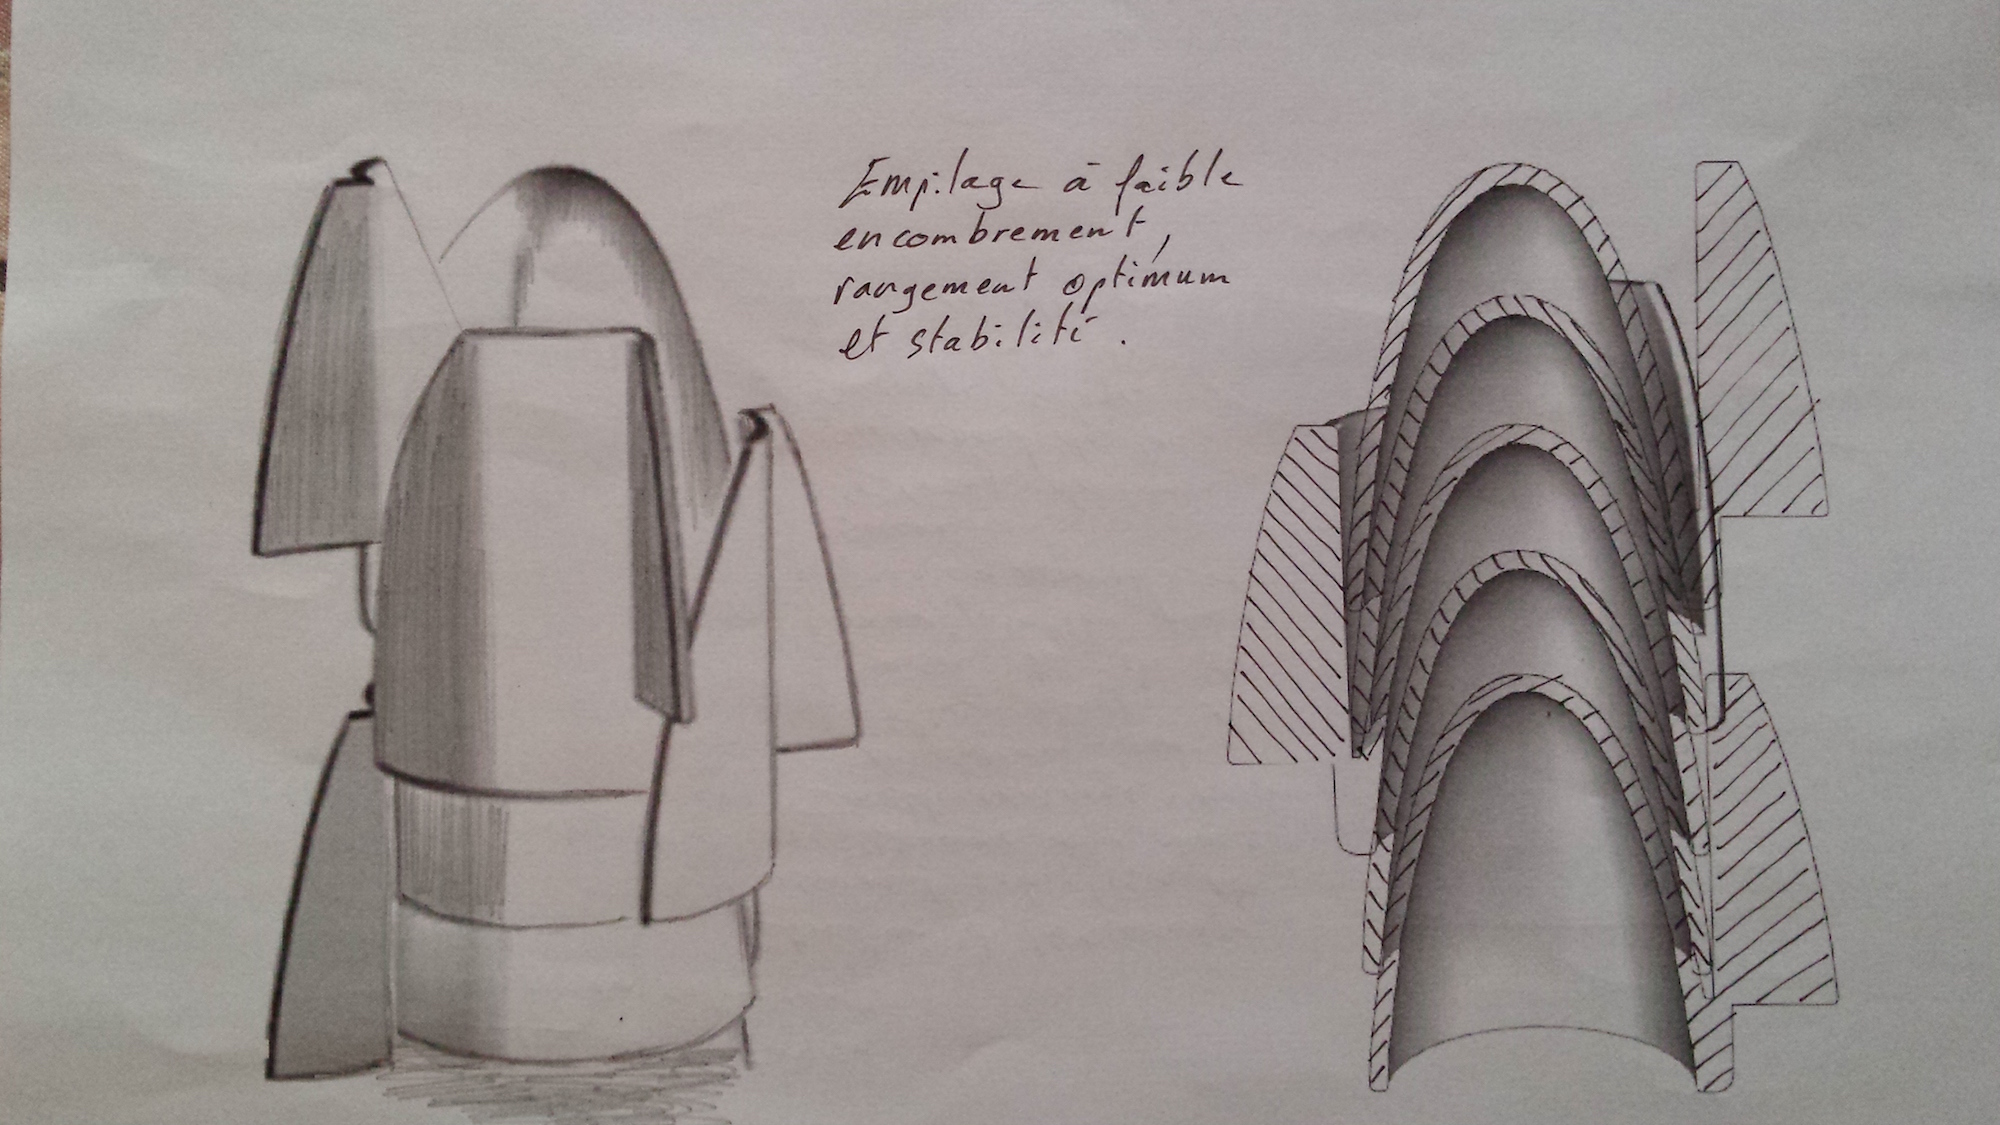 Empilage à faible
encombrement,
rangement optimum
et stabilité.